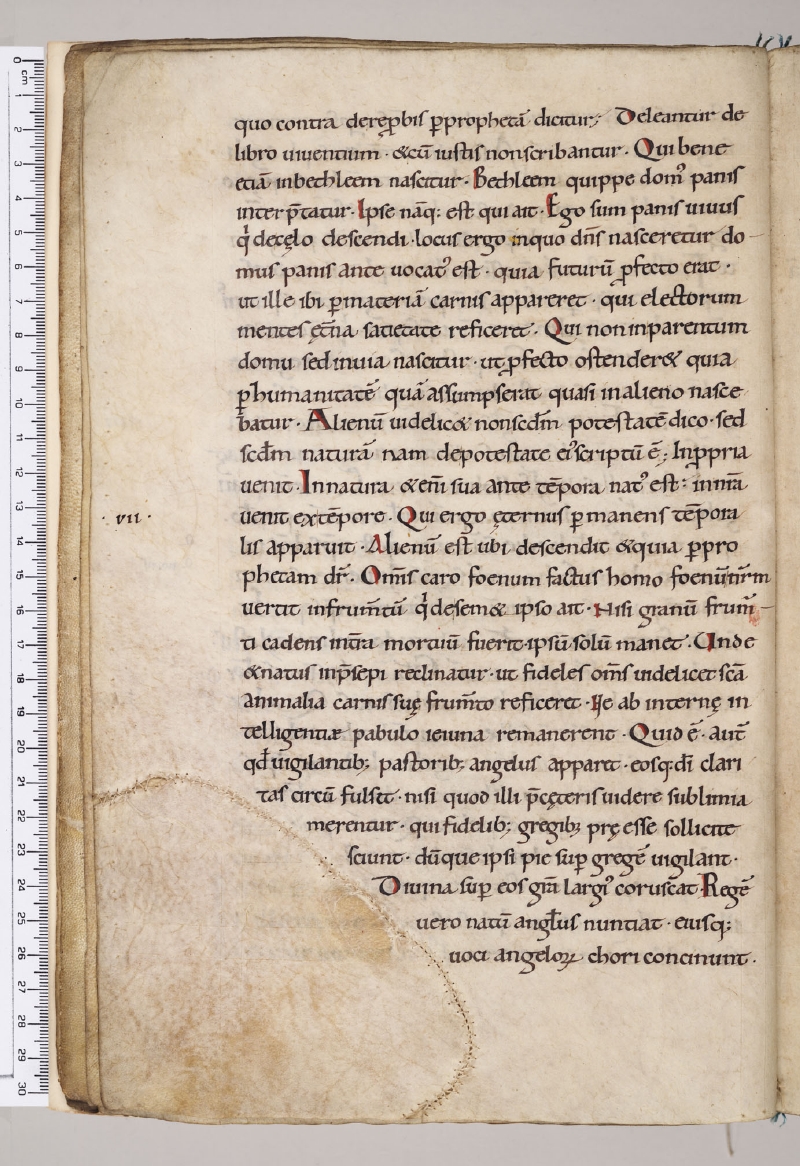 quo contra derep̱bis p̱prophetā dicitur; Deleantur de
libro uiuentium · &cū iustis non scribantur · Qui bene
etiā inbethleem nascitur · Bethleem quippe dom᾽ panis
interp̄tatur · Ipse nāq; est qui ait · Ego sum panis uiuus
q̓ decęlo descendi · locus ergo inquo dn̄s nasceretur do
mus panis ante uocat᾽ est · quia futurū p̱fecto erat ·
ut ille ibi p̱ materiā carnis appareret · qui electorum
mentes ęt̄na satietate reficeret · Qui non inparentum
domu sed inuia nascitur · ut p̱fecto ostender& quia
p̱ humanitatē quā assumpserat quasi in alieno nasce
batur · Alienū uidelic& non scd̄m potestatē dico · sed
scd̄m naturā nam depotestate ei᾽ scriptū ē; Inp̱pria
uenit · In natura &eni̅ sua ante tēpora nat᾽ est · in nr̄a
· vii · uenit extēpore · Qui ergo ęternus p̱manens tēpora
lis apparuit · Alienū est ubi descendit &quia p̱pro
phetam dr̄ · Om̄is caro foenum factus homo foenū nr̄m
uertit infrum̄tū q̓ desem& ipso ait · Nisi granū frum̄
ti cadens int̄ra mortuū fuerit · ipsū solū manet · Unde
&natus inp̄sepi reclinatur · ut fideles om̄s uidelicet sc̄a
animalia carnis suę frum̄to reficeret · Ne ab internę in
telligentiæ pabulo ieiuna remanerent · Quid ē · aut̄
qd̄ uigilantib; pastorib; angelus apparet · eosq; dī clari
tas circū fulsit · nisi quod illi p̄ cęteris uidere sublimia
merentur · qui fidelib; gregib; prę esse sollicite
sciunt · dūque ipsi pie sup̱ gregē uigilant ·
Diuina sup̱ eos gr̄a largi᾽ coruscat · Regē
uero natū angl̄us nuntiat · eiusq;
uoci angeloꝝ chori concinunt ·